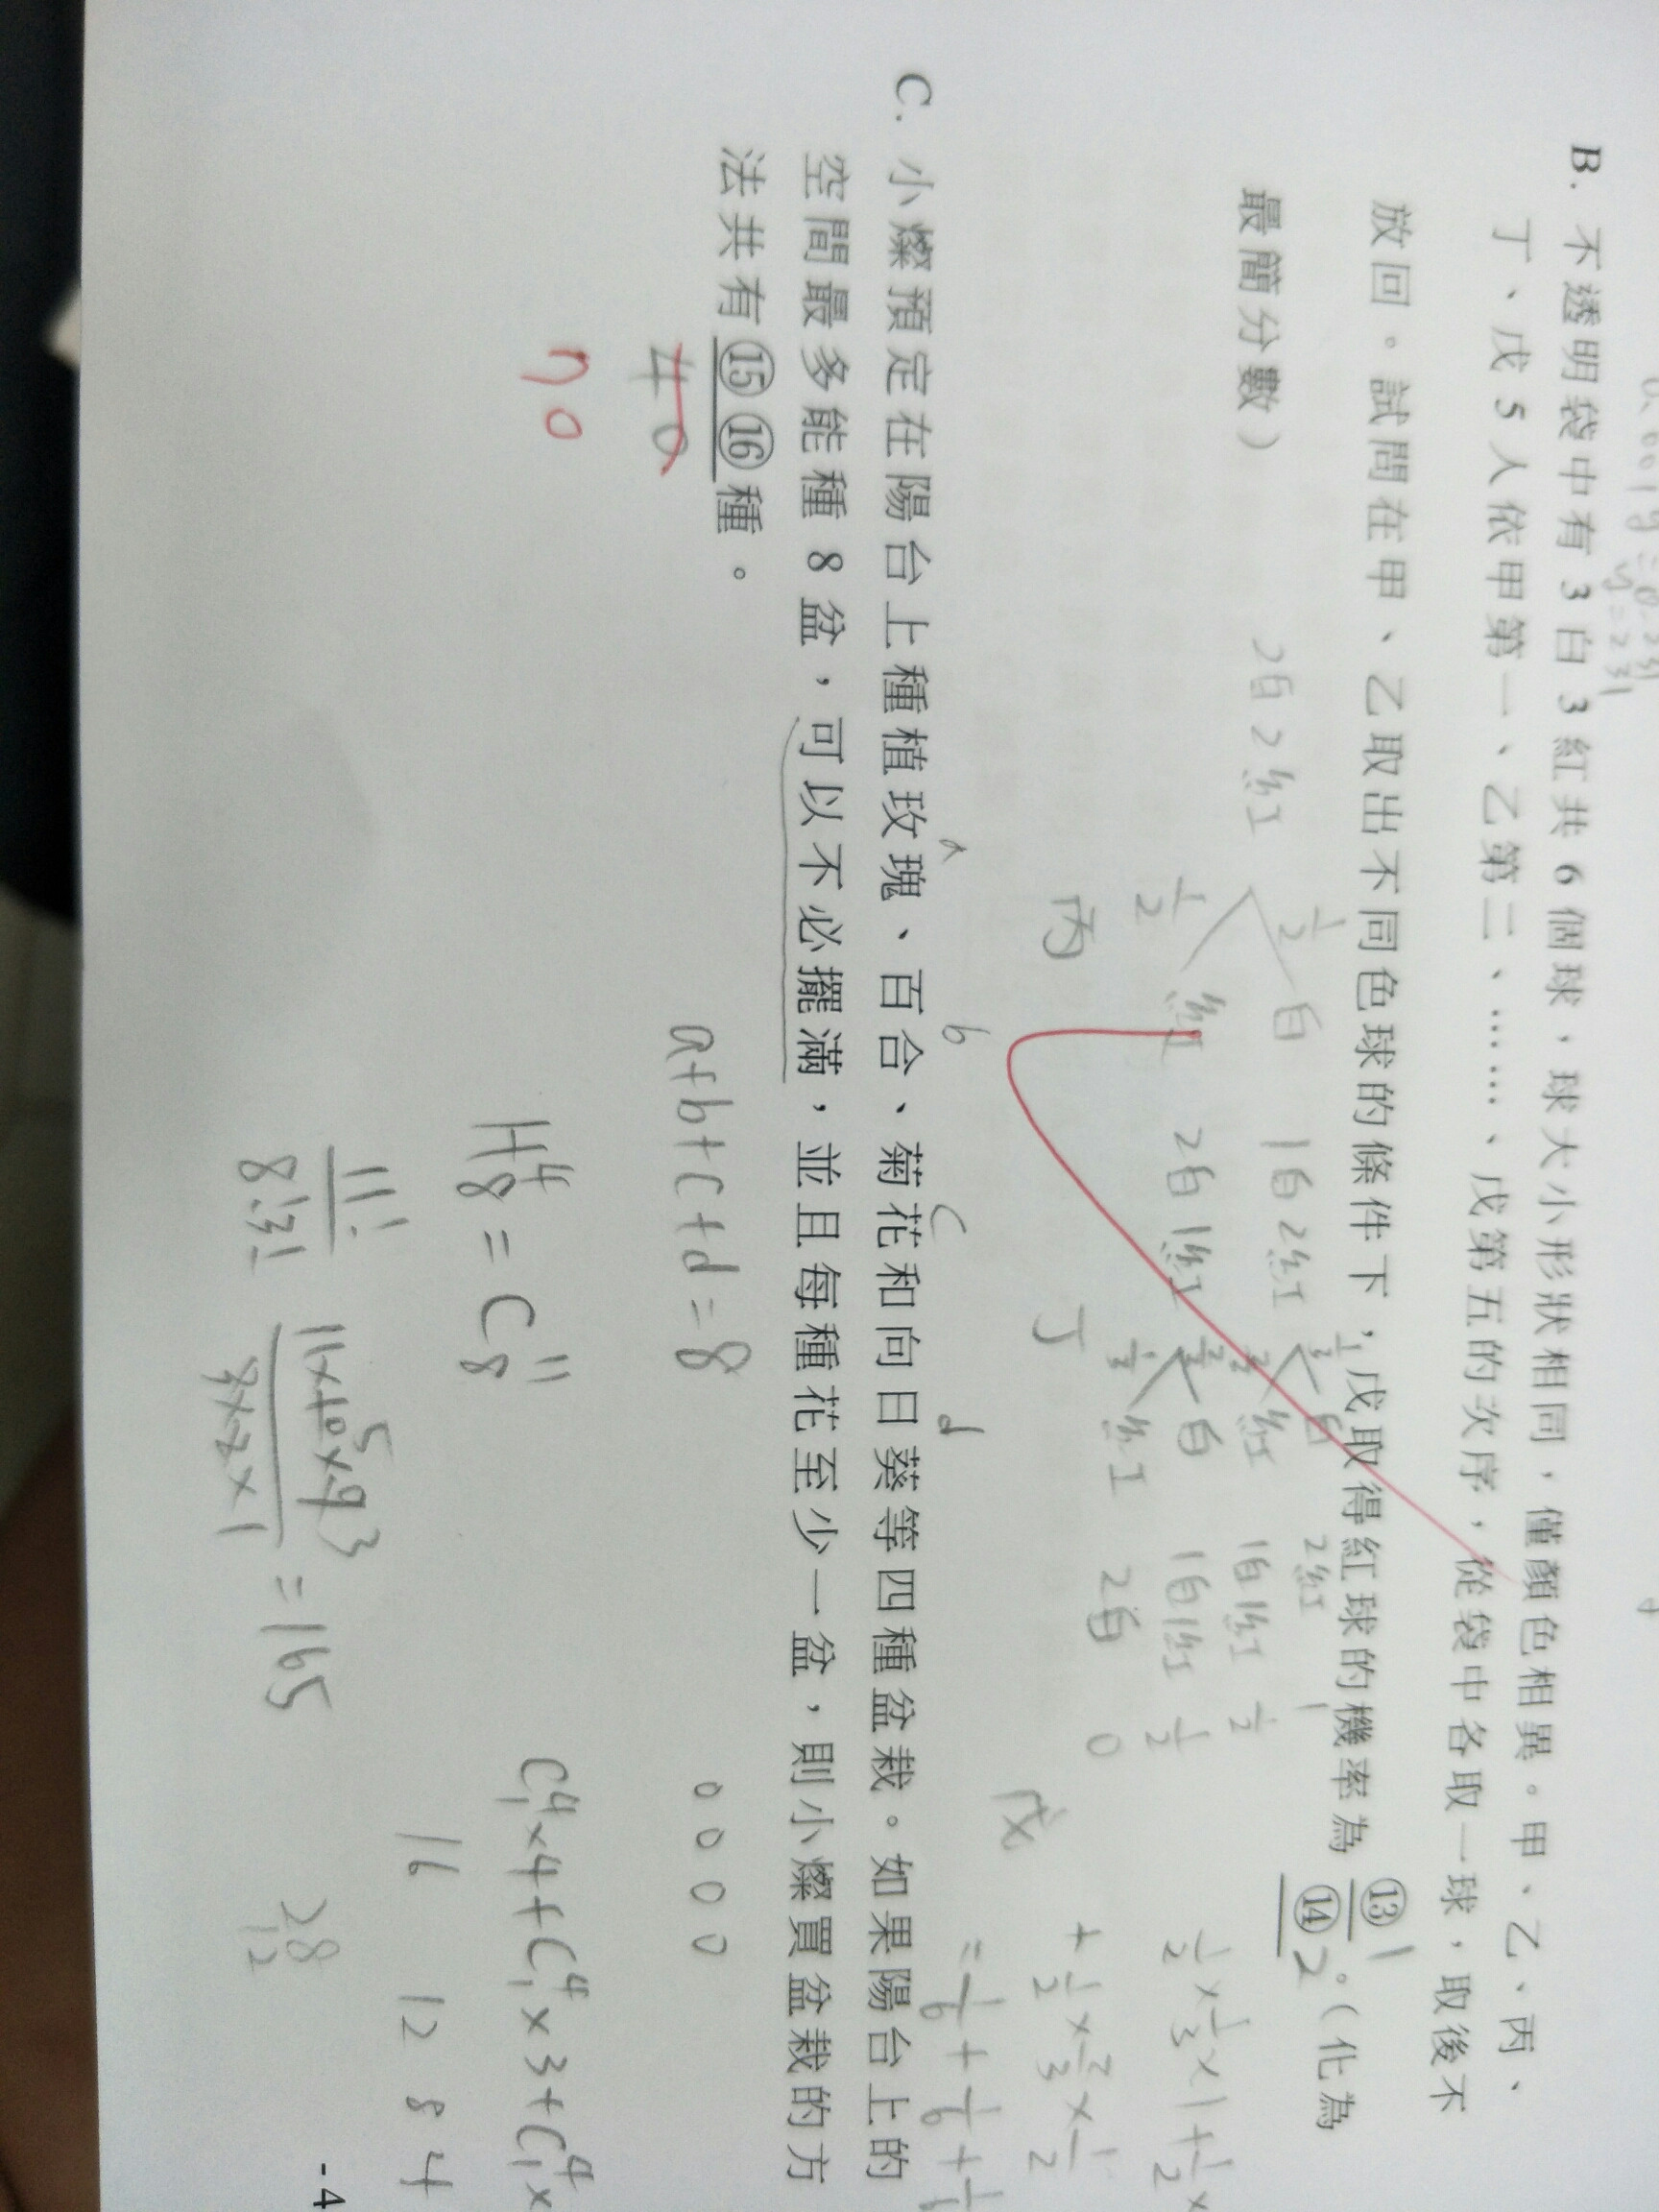 B. 不透明袋中有 3 白 3 紅共 6 個球，球大小形狀相同，僅顏色相異。甲、乙、丙、
丁、戊 5 人依甲第一、乙第二、……、戊第五的次序，從袋中各取一球，取後不
放回。試問在甲、乙取出不同色球的條件下，戊取得紅球的機率為 ⑬ 1
⑭ 2 。（化為
最簡分數）
2白2紅
1/2 白 1白2紅 1/3 白 2紅 1
2/3 紅 1白1紅 1/2
1/2 紅 2白1紅 2/3 白 1白1紅 1/2
1/3 紅 2白 0
丙 丁 戊
1/2×1/3×1+1/2×
+1/2×2/3×1/2
=1/6+1/6+
C. 小燦預定在陽台上種植玫瑰、百合、菊花和向日葵等四種盆栽。如果陽台上的
a b c d
空間最多能種 8 盆，可以不必擺滿，並且每種花至少一盆，則小燦買盆栽的方
法共有 ⑮ ⑯ 種。
40
70
a+b+c+d=8
0 0 0 0
H⁴₈=C¹¹₈
C⁴₁×4+C⁴₁×3+C⁴₁×
16 12 8 4
11!/8!3! 11×10×9/3×2×1 =165
5 3
28
12
- 4